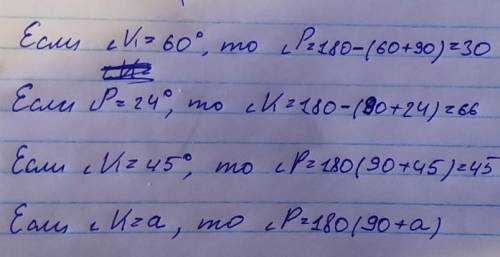 Если ∠K=60°, то ∠P=180-(60+90)=30
Если ∠P=24°, то ∠K=180-(90+24)=66
Если ∠K=45°, то ∠P=180(90+45)=45
Если ∠K=a, то ∠P=180(90+a)